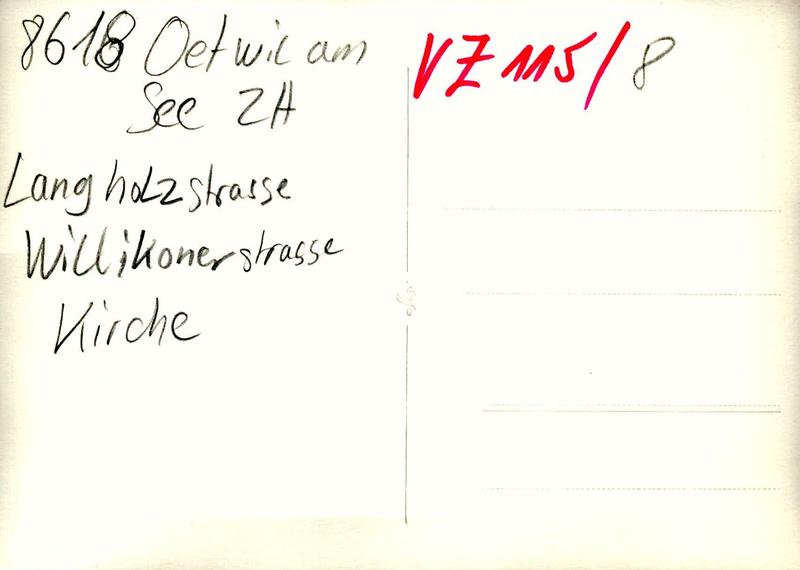 8618 Oetwil am
See ZH
Langholzstrasse
Willikonerstrasse
Kirche
VZ 115/8